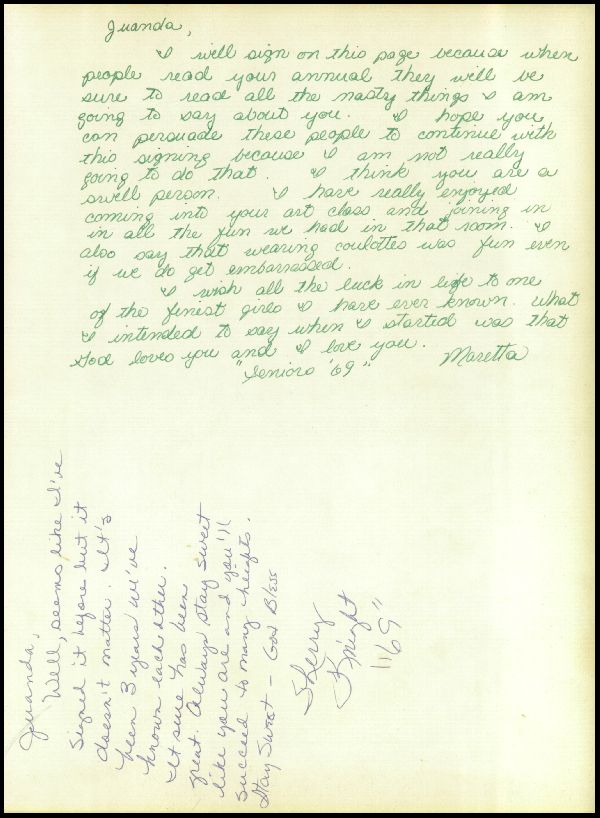 Juanda,
I will sign on this page because when
people read your annual they will be
sure to read all the nasty things I am
going to say about you. I hope you
can persuade these people to continue with
this signing because I am not really
going to do that. I think you are a
swell person. I have really enjoyed
coming into your art class and joining in
in all the fun we had in that room. I
also say that wearing coulottes was fun even
if we do get embarrassed.
I wish all the luck in life to one
of the finest girls I have ever known. What
I intended to say when I started was that
God loves you and I love you.
"Seniors '69" Maretta
Juanda,
Well, seems like I've
signed it before but it
doesn't matter. It's
been 3 years we've
known each other.
It sure has been
great. Always stay sweet
like you are and you'll
succeed to many heights.
Stay Sweet - God Bless
Sherry
Knight
"69"